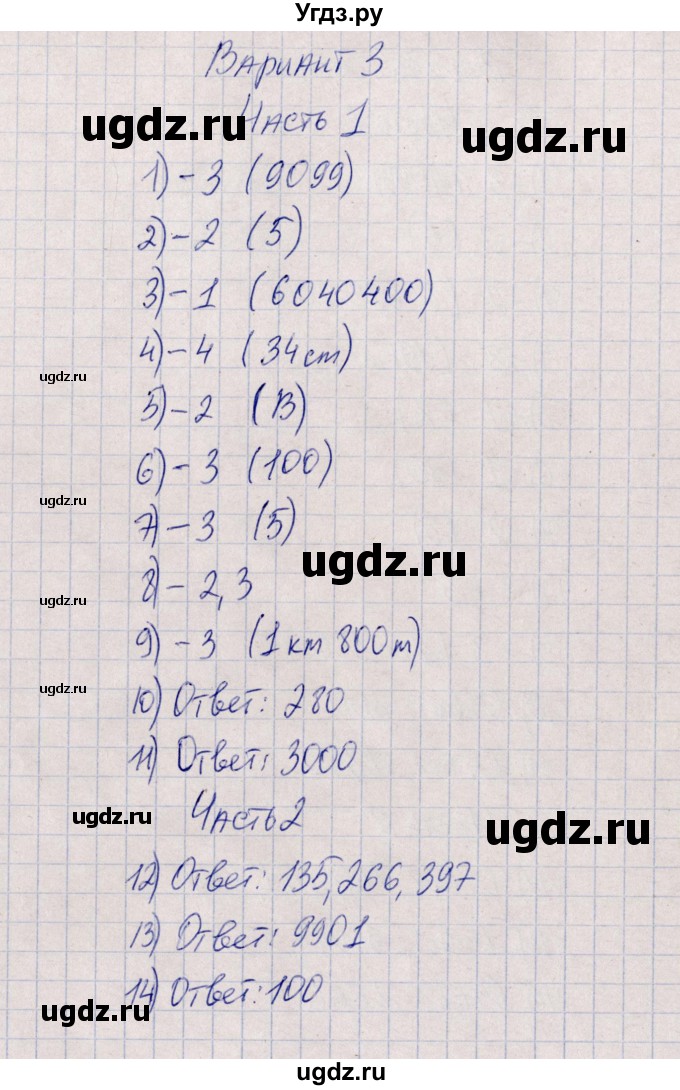 Угдз.ру
Вариант 3
Часть 1
ugdz.ru
ugdz.ru
1) - 3 (9099)
2) - 2 (5)
3) - 1 (6040400)
4) - 4 (34cm)
ugdz.ru
5) - 2 (В)
6) - 3 (100)
ugdz.ru
7) - 3 (5)
ugdz.ru
8) - 2,3
ugdz.ru
9) - 3 (1 km 800m)
ugdz.ru
10) Ответ: 280
11) Ответ: 3000
Часть 2
ugdz.ru
ugdz.ru
12) Ответ: 135, 266, 397
13) Ответ: 9901
14) Ответ: 100
ugdz.ru
ugdz.ru
ugdz.ru